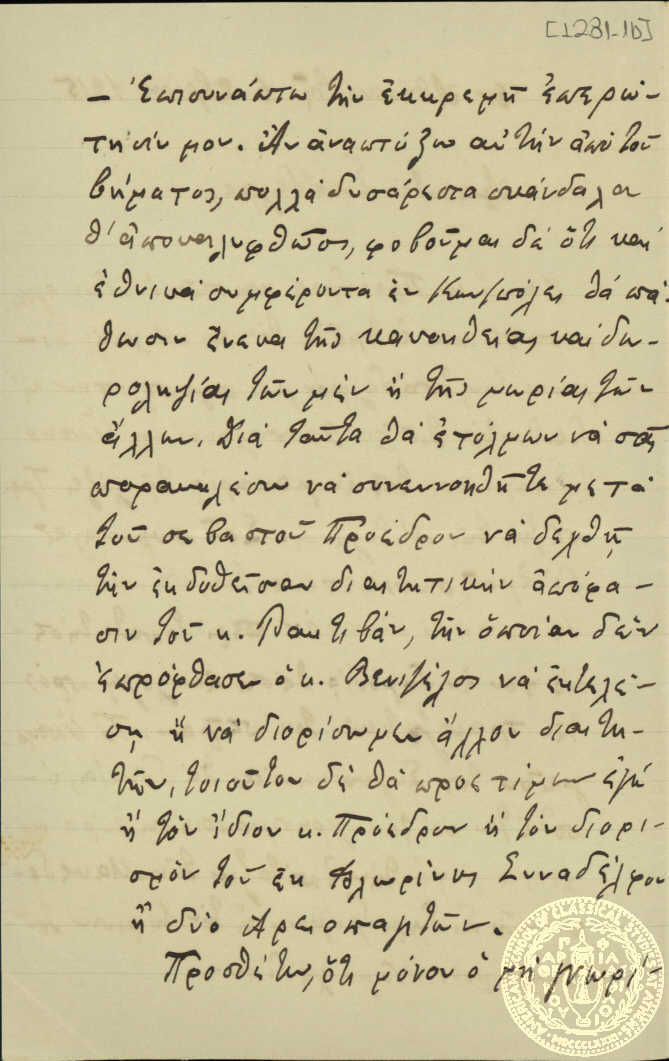 [1281-1b]
— Ἐπισυνάπτω τὴν ἐκκρεμῆ ἐπερώ-
τησίν μου. Ἂν ἀναπτύξω αὐτὴν ἀπὸ τοῦ
βήματος, πολλὰ δυσάρεστα σκάνδαλα
θ' ἀποκαλυφθῶσι, φοβοῦμαι δὲ ὅτι καὶ
ἐθνικὰ συμφέροντα ἐν Κων/πόλει θὰ πά-
θωσιν ἕνεκα τῆς κακοηθείας καὶ δω-
ροληψίας τῶν μὲν ἢ τῆς μωρίας τῶν
ἄλλων. Διὰ ταῦτα θὰ ἐτόλμων νὰ σᾶς
παρακαλέσω νὰ συνεννοηθῆτε μετὰ
τοῦ σεβαστοῦ Προέδρου νὰ δεχθῇ
τὴν ἐκδοθεῖσαν διαιτητικὴν ἀπόφα-
σιν τοῦ κ. Ρακτιβάν, τὴν ὁποίαν δὲν
ἐπρόφθασεν ὁ κ. Βενιζέλος νὰ ἐκτελέ-
σῃ ἢ νὰ διορίσωμεν ἄλλον διαιτη-
τήν, τοιοῦτον δὲ θὰ προετίμων ἐγὼ
ἢ τὸν ἴδιον κ. Πρόεδρον ἢ τὸν διορι-
σμὸν τοῦ ἐκ Φλωρίνης Συναδέλφου
ἢ δύο Ἀρεοπαγιτῶν.
Προσθέτω, ὅτι μόνον ὁ μὴ γνωρί-
AMERICAN SCHOOL OF CLASSICAL STUDIES AT ATHENS
MDCCCLXXXI